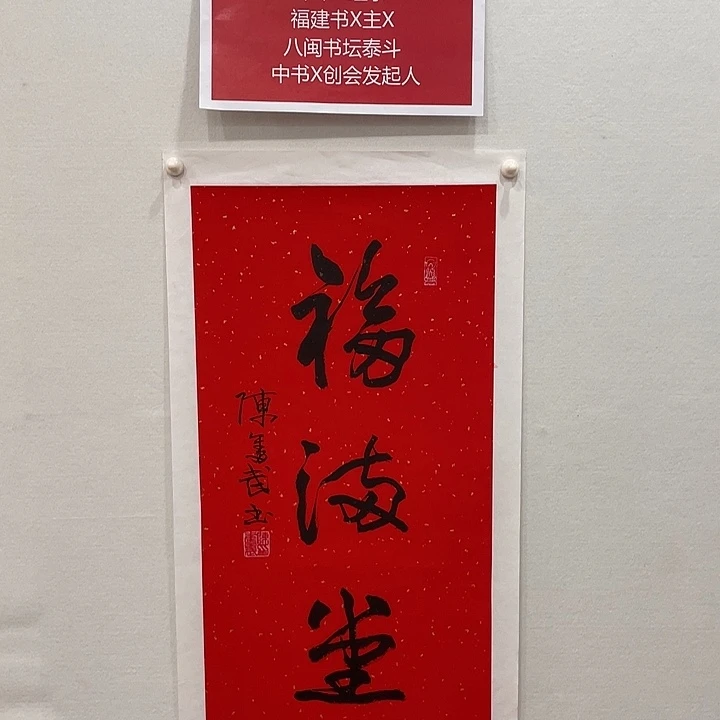 福建书X主X
八闽书坛泰斗
中书X创会发起人
福满堂
陳奮武书